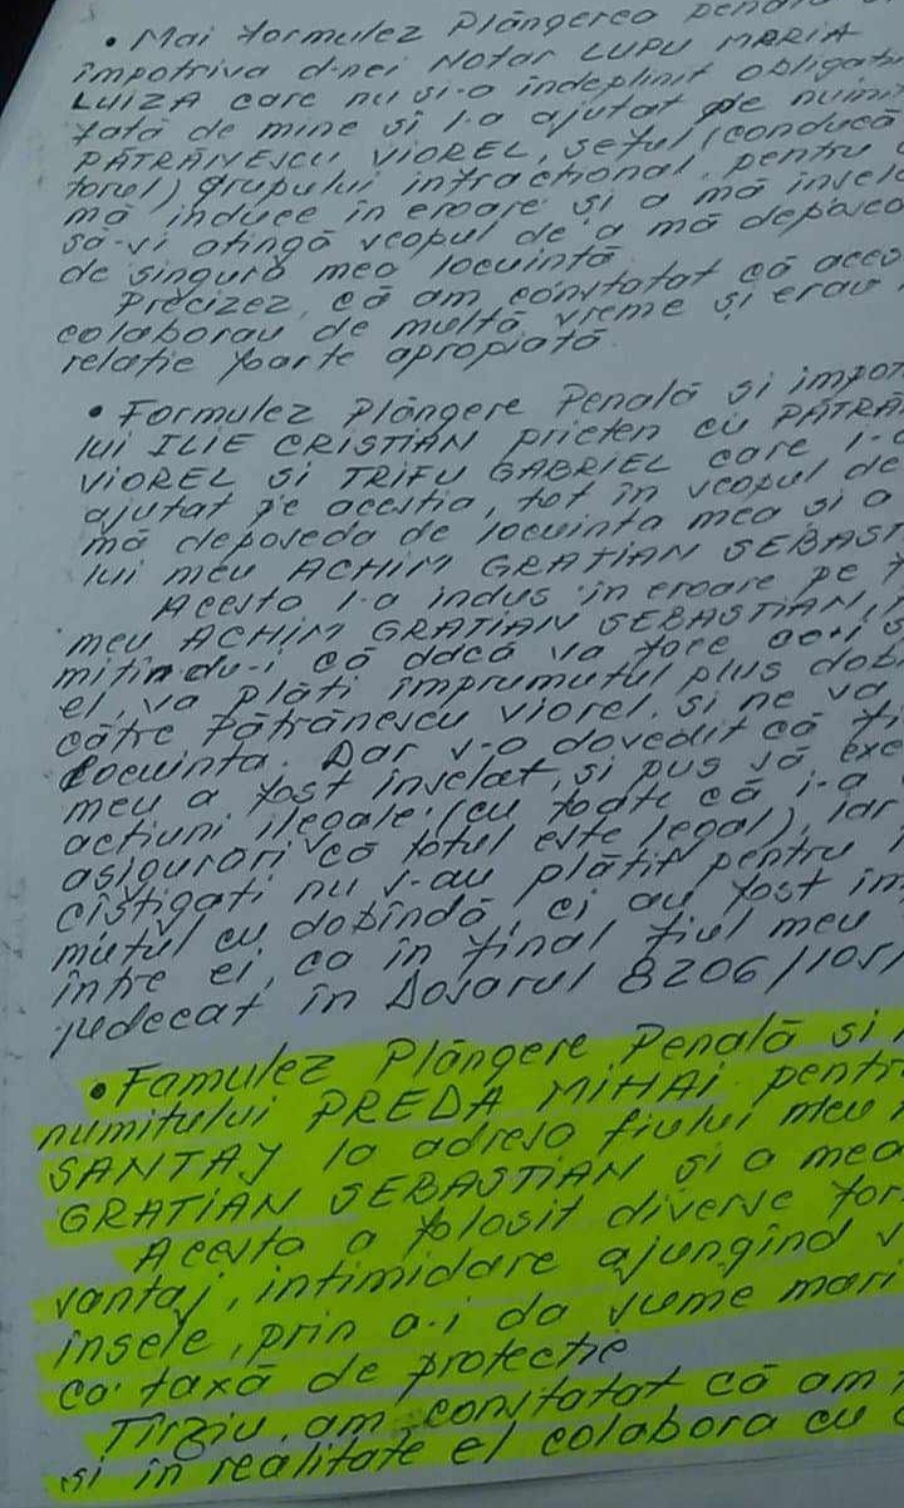 • Mai formulez Plângerea
împotriva d-nei Notar LUPU MARIA
LUIZA care nu și-a îndeplinit obligați
față de mine și l-a ajutat pe numi
PĂTRĂNESCU VIOREL, șeful (conducă
torul) grupului infracțional, pentru
mă induce în eroare și a mă înșel
să-și atingă scopul de a mă deposed
de singura mea locuință
Precizez, că am constatat că aceș
colaborau de multă vreme și erau
relație foarte apropiată.
• Formulez Plângere Penală și împot
lui ILIE CRISTIAN prieten cu PĂTRĂ
VIOREL și TRIFU GABRIEL care i-a
ajutat pe aceștia, tot în scopul de
mă deposeda de locuința mea și a
lui meu ACHIM GRAȚIAN SEBAST
Acesta l-a indus în eroare pe f
meu ACHIM GRAȚIAN SEBASTIAN,
mițîndu-i că dacă va face
el, va plăti împrumutul plus dob
către Pătrănescu Viorel, și ne va
locuința. Dar s-a dovedit că fi
meu a fost înșelat, și pus să exe
acțiuni ilegale (cu toate că i-a
asigurări că totul este legal), iar
cîștigați nu s-au plătit pentru
mutul cu dobîndă, ci au fost îm
între ei, ca în final fiul meu
judecat în Dosarul 8206/105/
• Famulez Plângere Penală și
numitului PREDA MIHAI pentr
SANTAJ la adresa fiului meu
GRAȚIAN SEBASTIAN și a mea
Acesta a folosit diverse for
șantaj, intimidare ajungînd
însele, prin a-i da sume mari
ca taxă de protecție
Tîrziu, am constatat că am
și în realitate el colabora cu